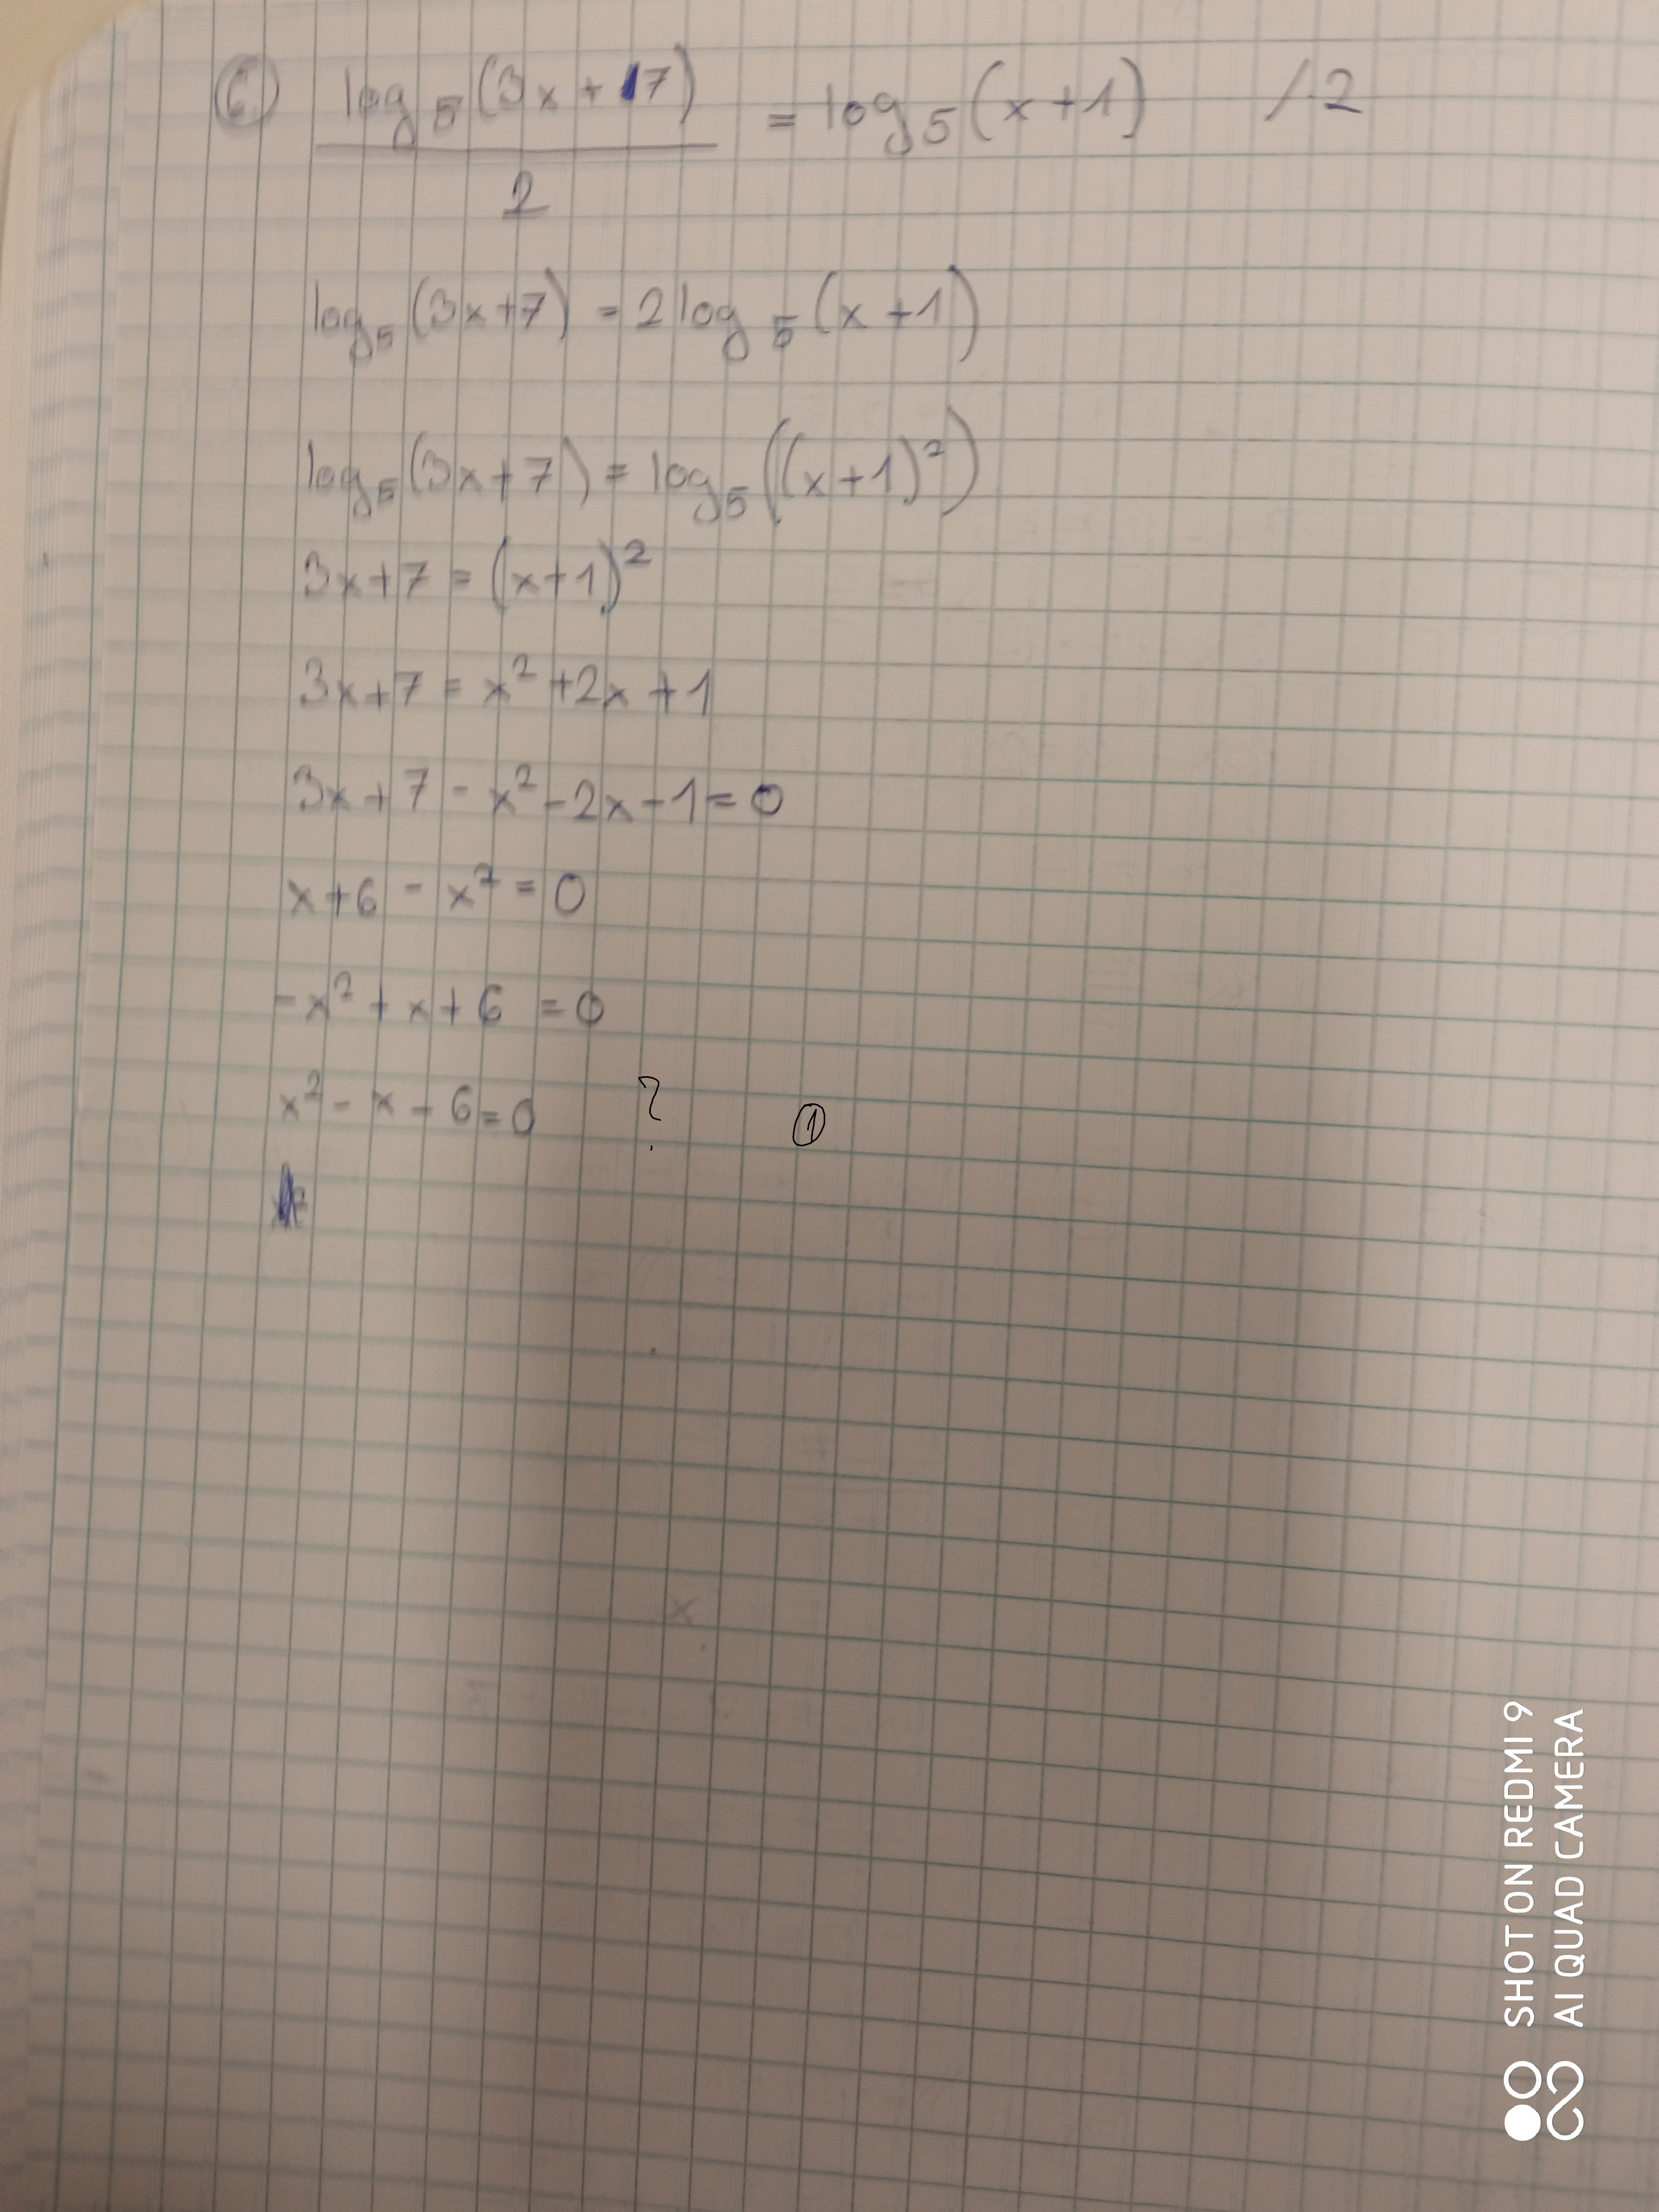 6) log₅(3x+17) / 2 = log₅(x+1) /·2
log₅(3x+7) = 2log₅(x+1)
log₅(3x+7) = log₅((x+1)²)
3x+7 = (x+1)²
3x+7 = x²+2x+1
3x+7-x²-2x-1=0
x+6-x²=0
-x²+x+6=0
x²-x-6=0 ? 1
SHOT ON REDMI 9
AI QUAD CAMERA